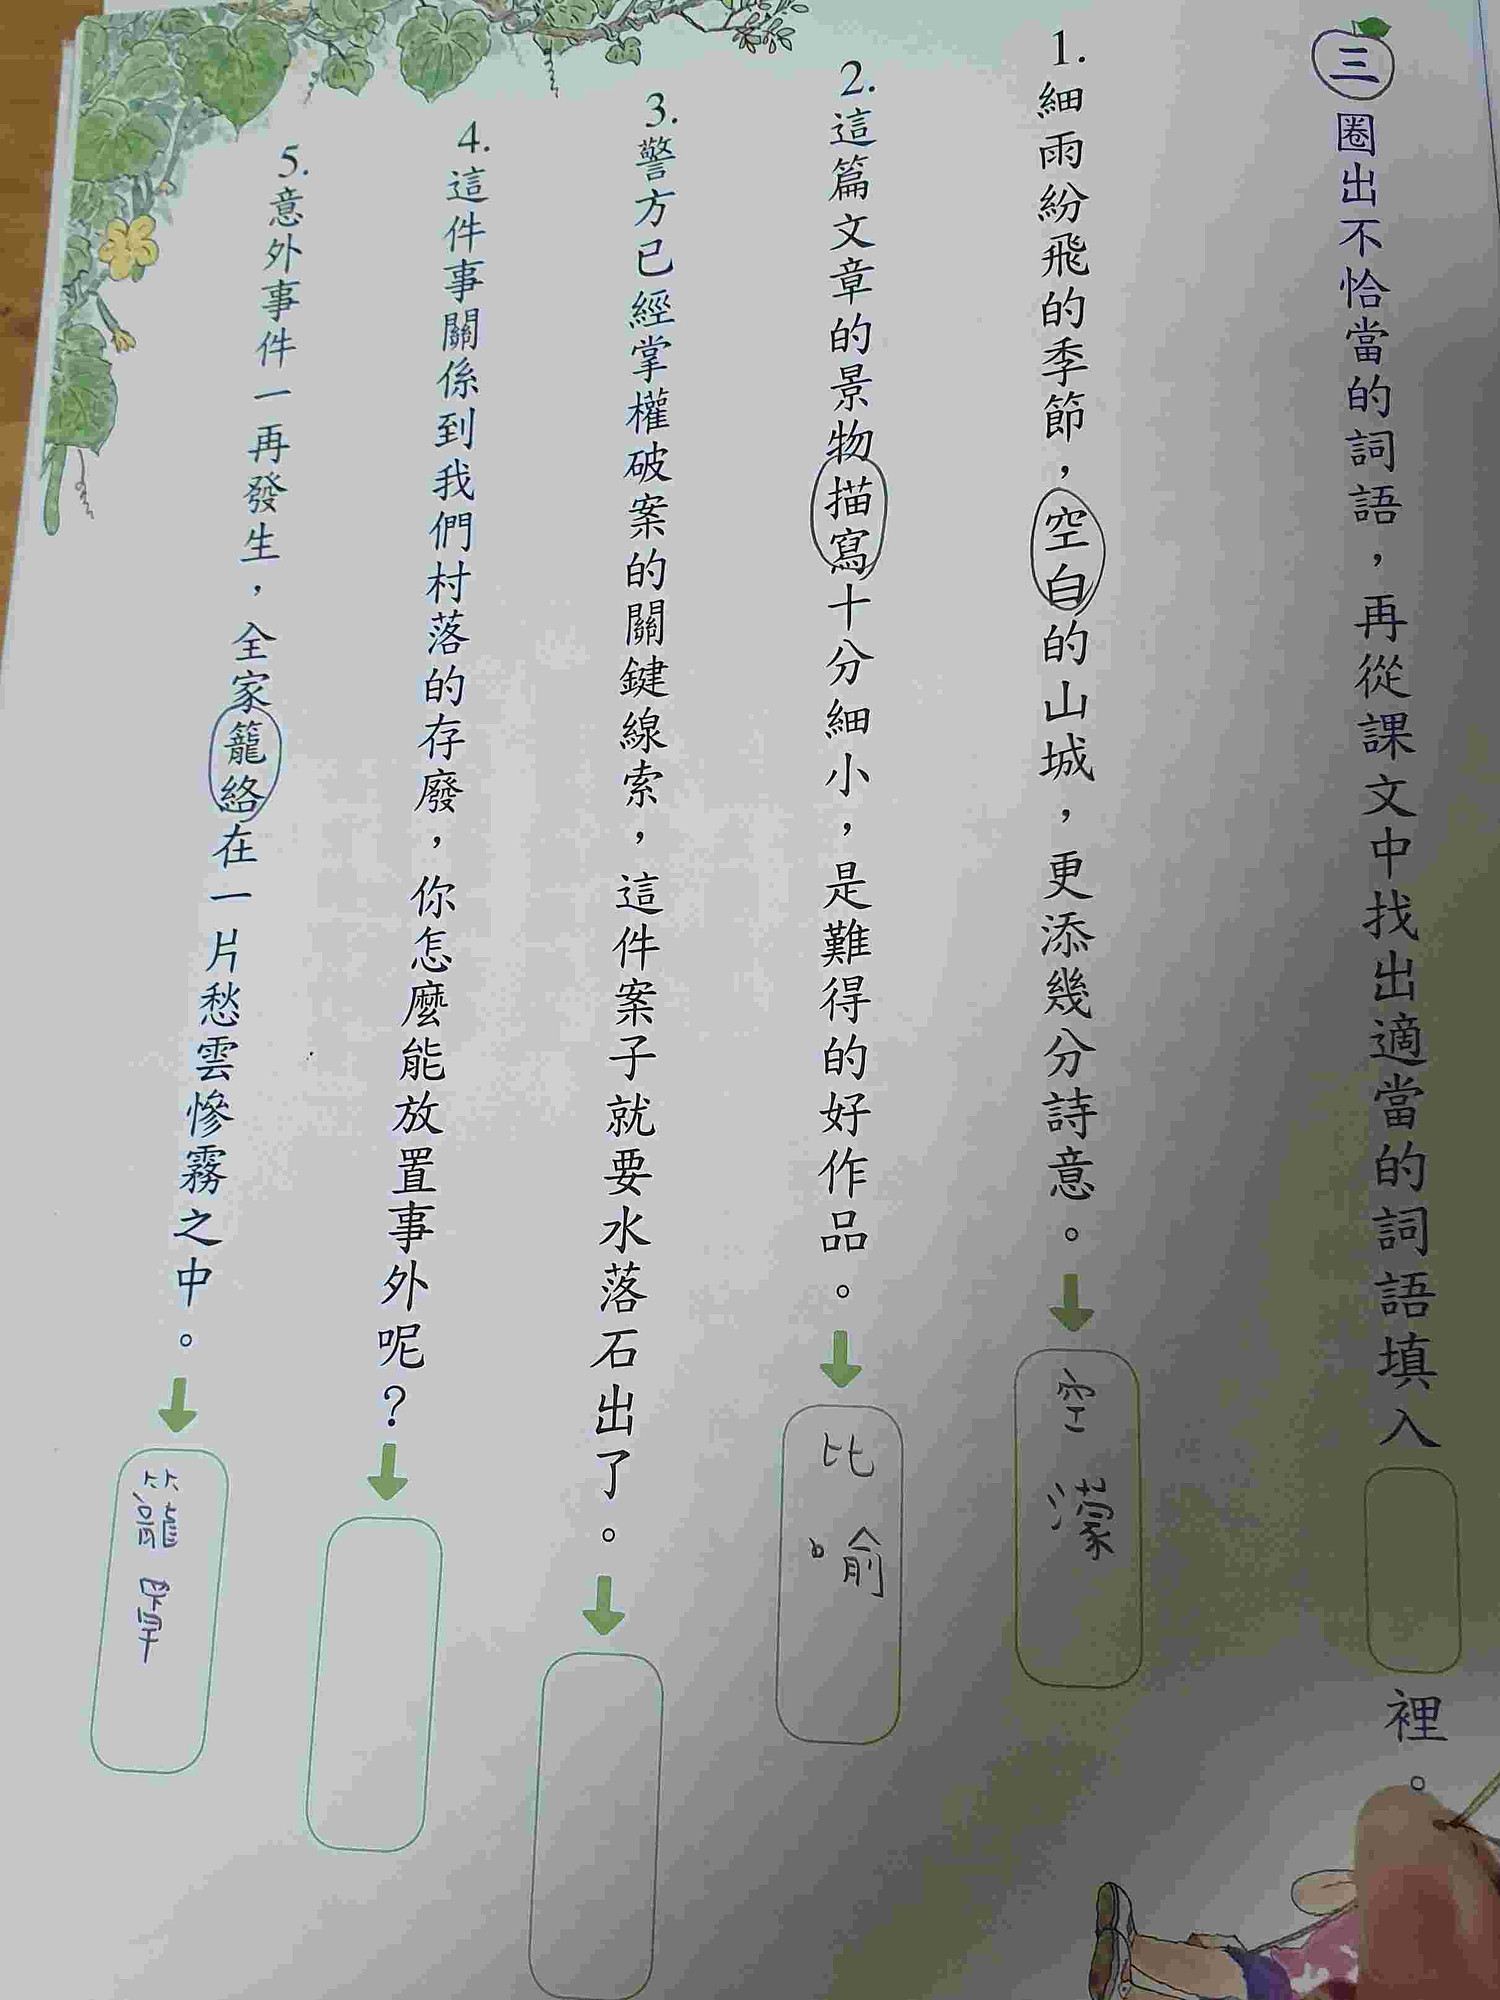 三 圈出不恰當的詞語，再從課文中找出適當的詞語填入 裡。
1. 細雨紛飛的季節，空白的山城，更添幾分詩意。
空濛
2. 這篇文章的景物描寫十分細小，是難得的好作品。
比喻
3. 警方已經掌權破案的關鍵線索，這件案子就要水落石出了。
4. 這件事關係到我們村落的存廢，你怎麼能放置事外呢？
5. 意外事件一再發生，全家籠絡在一片愁雲慘霧之中。
籠罩